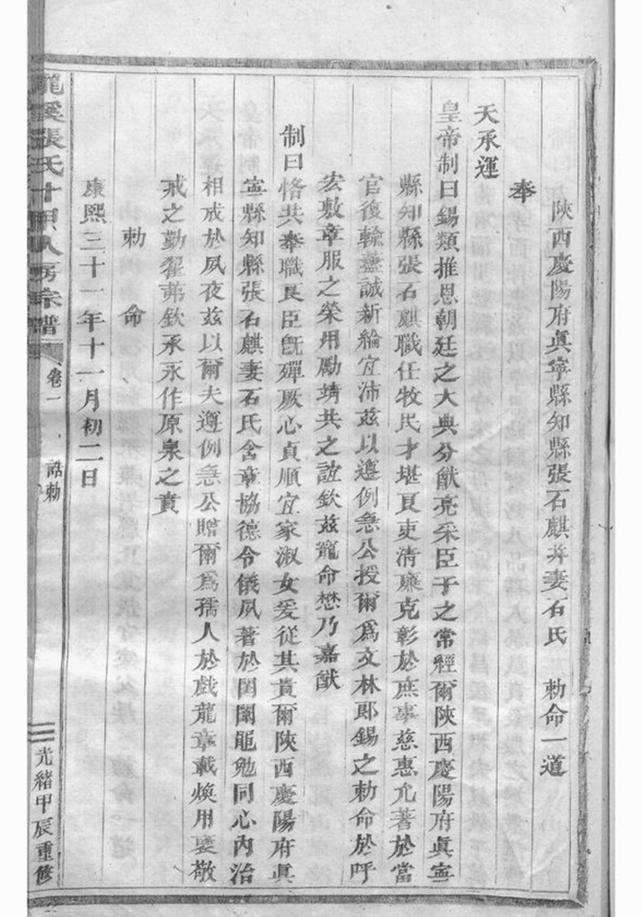 陝西慶陽府眞寧縣知縣張石麒并妻石氏　勅命一道
奉
天承運
皇帝制曰錫類推恩朝廷之大典分猷亮采臣子之常經爾陝西慶陽府眞寧
縣知縣張石麒職任牧民才堪艮吏清廉克彰於庶事慈惠允著於當
官復輸藎誠新綸宜沛茲以遵例急公授爾爲文林郎錫之勅命於呼
宏敷章服之榮用勵靖共之誼欽茲寵命懋乃嘉猷
制曰恪共奉職艮臣旣殫厥心貞順宜家淑女爰從其貴爾陝西慶陽府眞
寧縣知縣張石麒妻石氏含章協德令儀夙著於閨闈黽勉同心內治
相戒於夙夜茲以爾夫遵例急公贈爾爲孺人於戲龍章載煥用褒敬
戒之勤翟茀欽承永作原泉之賁
勅　命
康熙三十一年十一月初二日
龍溪張氏十甲八房宗譜
卷一　誥勅
光緒甲辰重修